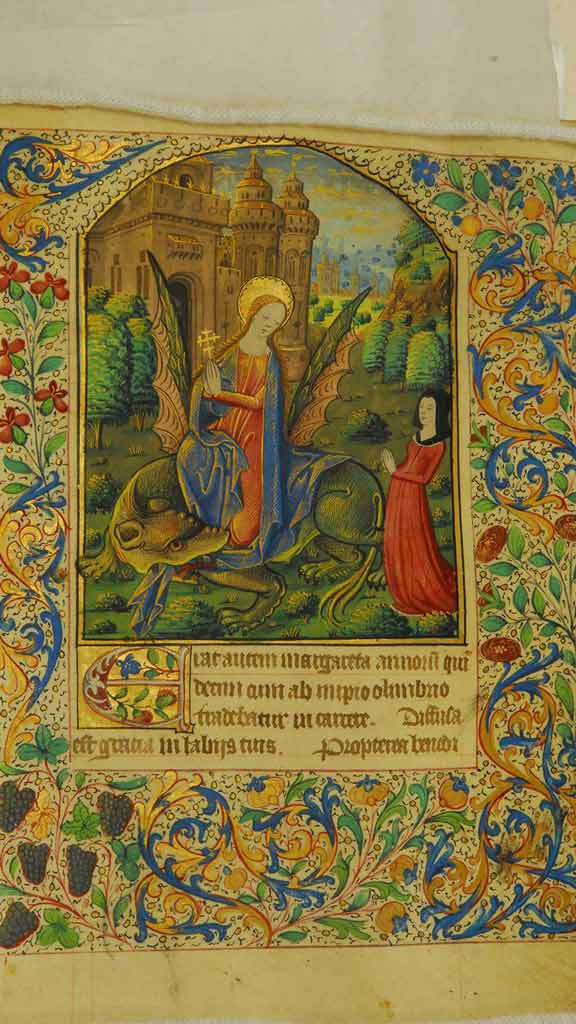 Erat autem margareta annor̄ qui
decim cum ab impio olimbrio
tradebatur in carcere. Diffusa
est gracia in labiis tuis. Propterea benedi